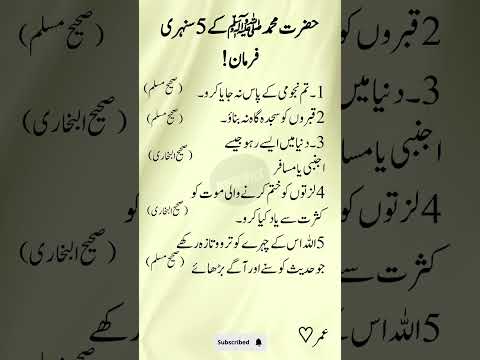 حضرت محمد ﷺ کے 5 سنہری
فرمان!
1۔تم نجومی کے پاس نہ جایا کرو۔ (صحیح مسلم)
2قبروں کو سجدہ گاہ نہ بناؤ۔ (صحیح مسلم)
3۔دنیا میں ایسے رہو جیسے
اجنبی یا مسافر (صحیح البخاری)
4لزتوں کو ختم کرنے والی موت کو
کثرت سے یاد کیا کرو۔ (صحیح البخاری)
5اللہ اس کے چہرے کو تروتازہ رکھے
جو حدیث کو سنے اور آگے بڑھائے (صحیح مسلم)
عمر♡
Subscribed
2قبروں کو
(صحیح مسلم)
3۔دنیا میں
اجنبی یا مسافر
(صحیح البخاری)
4
کثرت سے
5اللہ اس